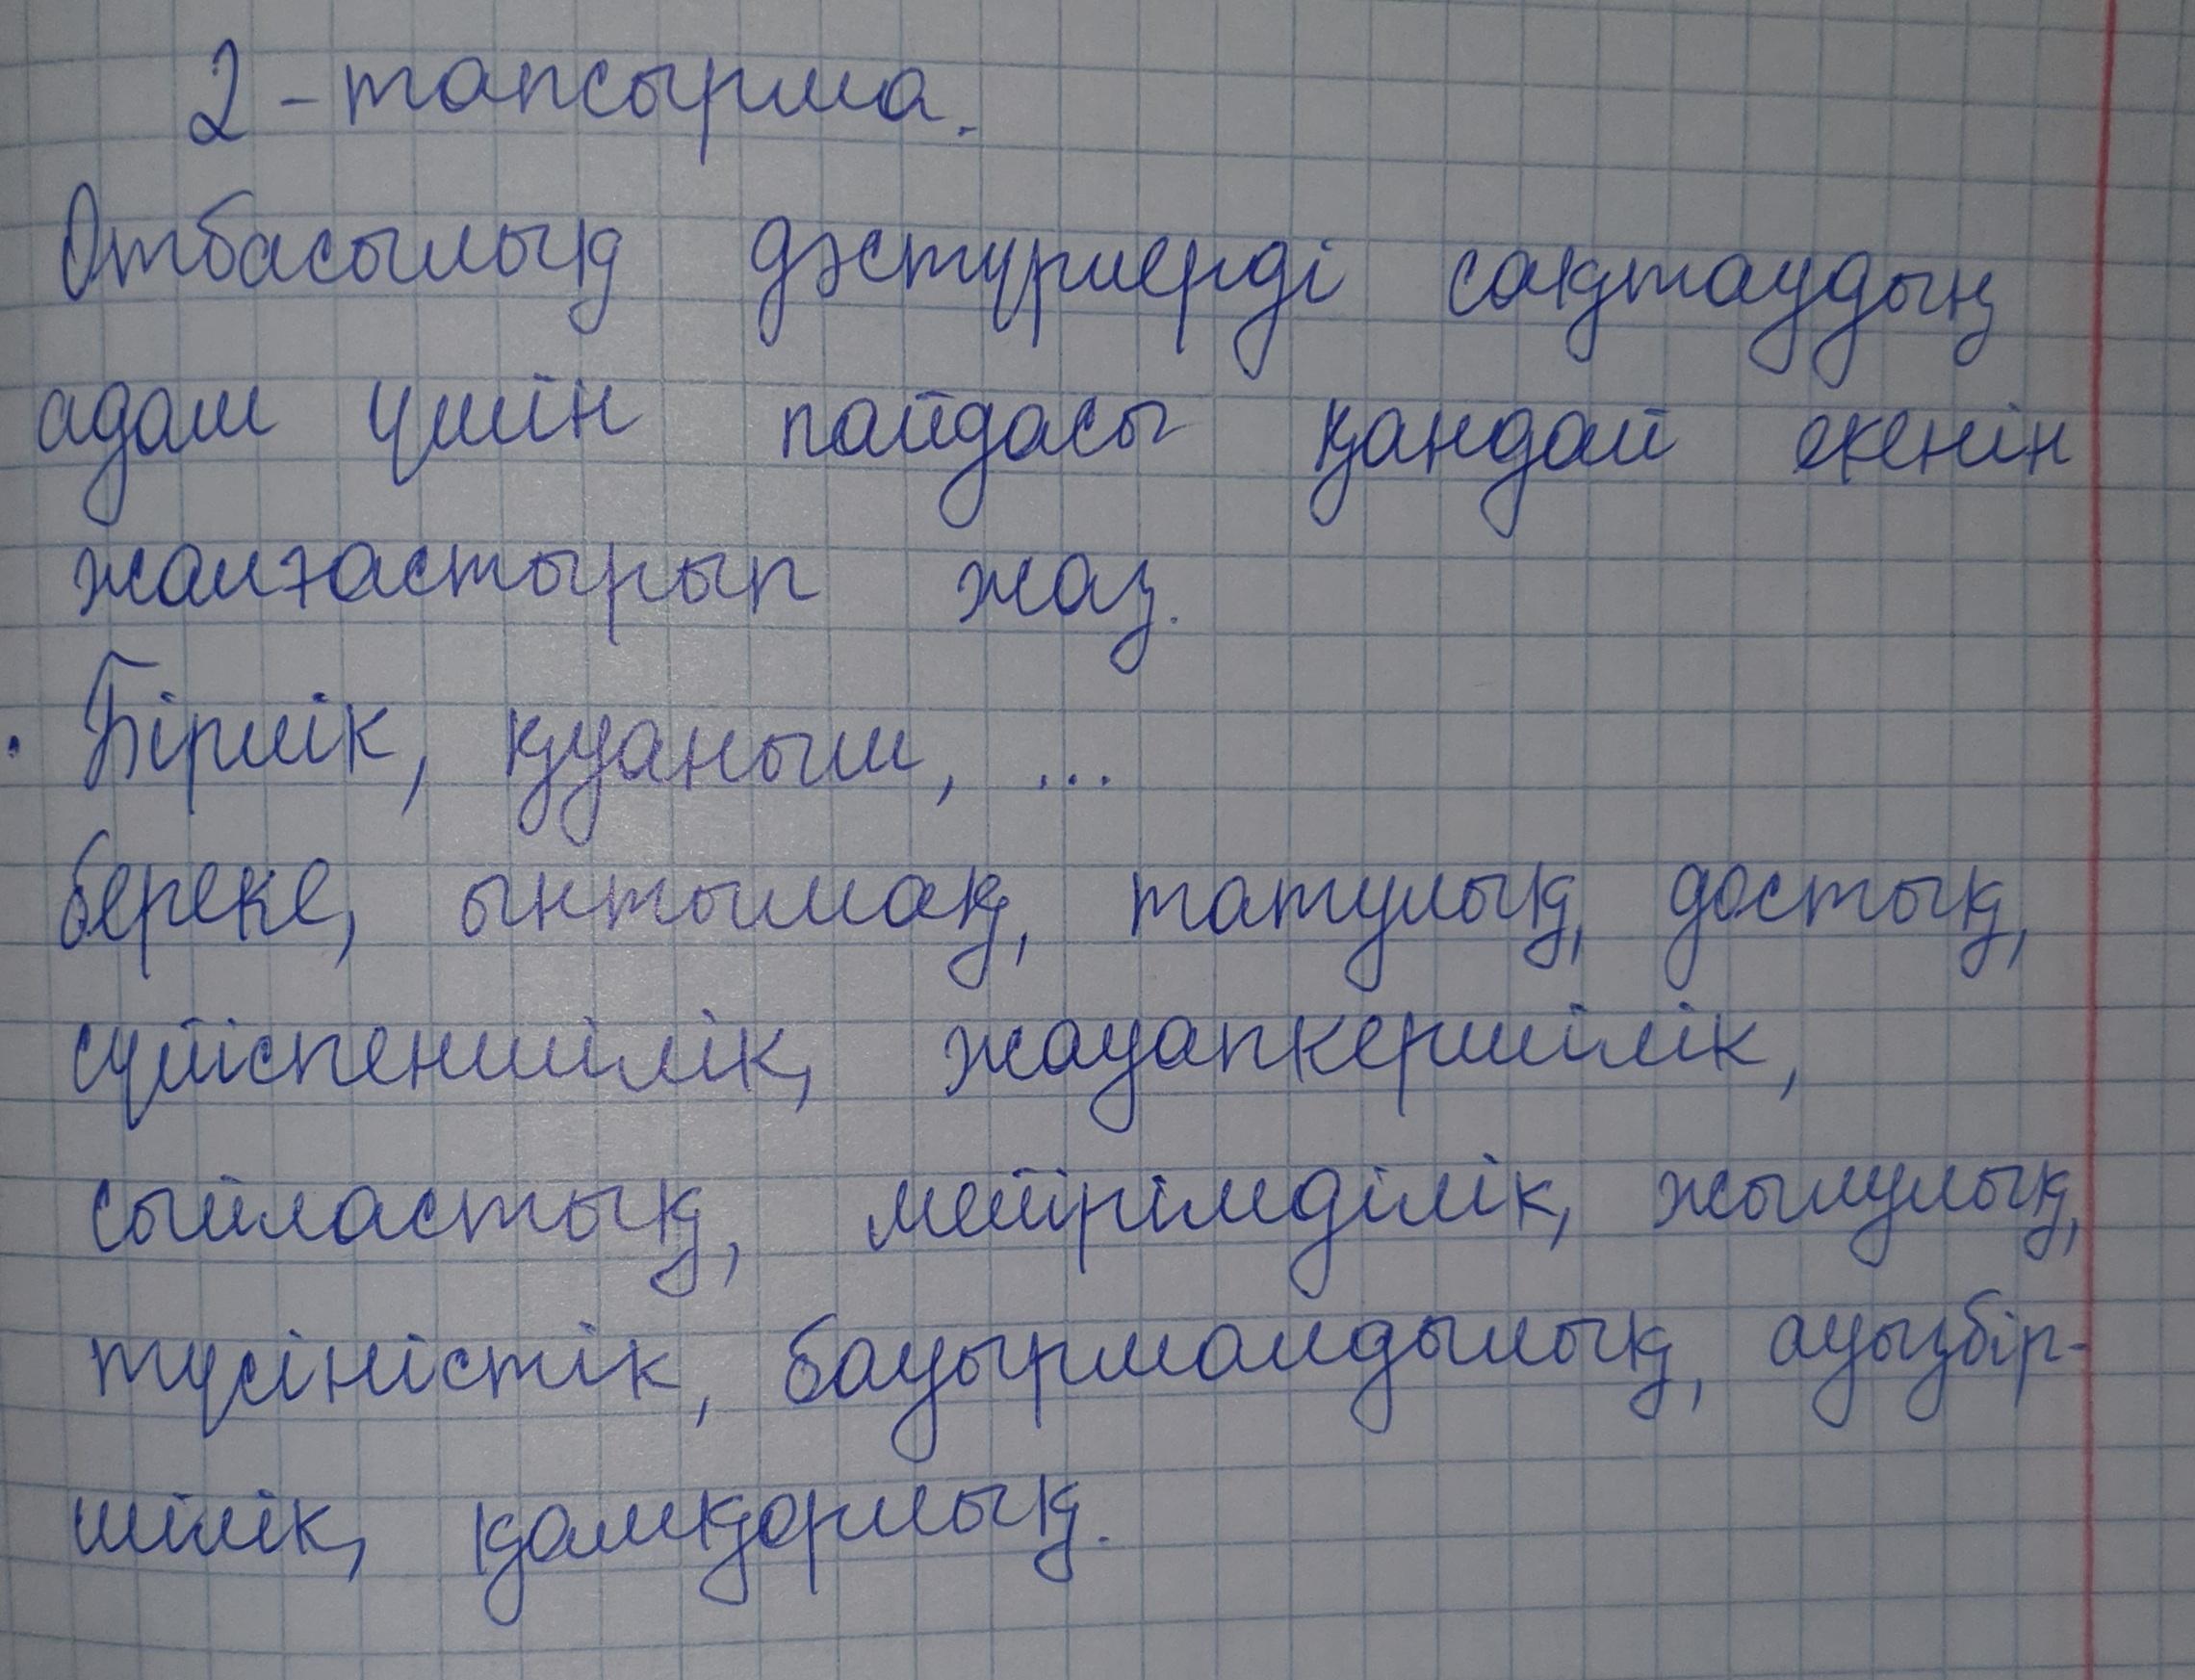 2-тапсырма.
Отбасылық дәстүрлерді сақтаудың
адам үшін пайдасы қандай екенін
жалғастырып жаз.
· Бірлік, қуаныш, ...
береке, ынтымақ, татулық, достық,
сүйіспеншілік, жауапкершілік,
сыйластық, мейірімділік, жылулық,
түсіністік, бауырмалдылық, ауызбір-
шілік, қамқорлық.